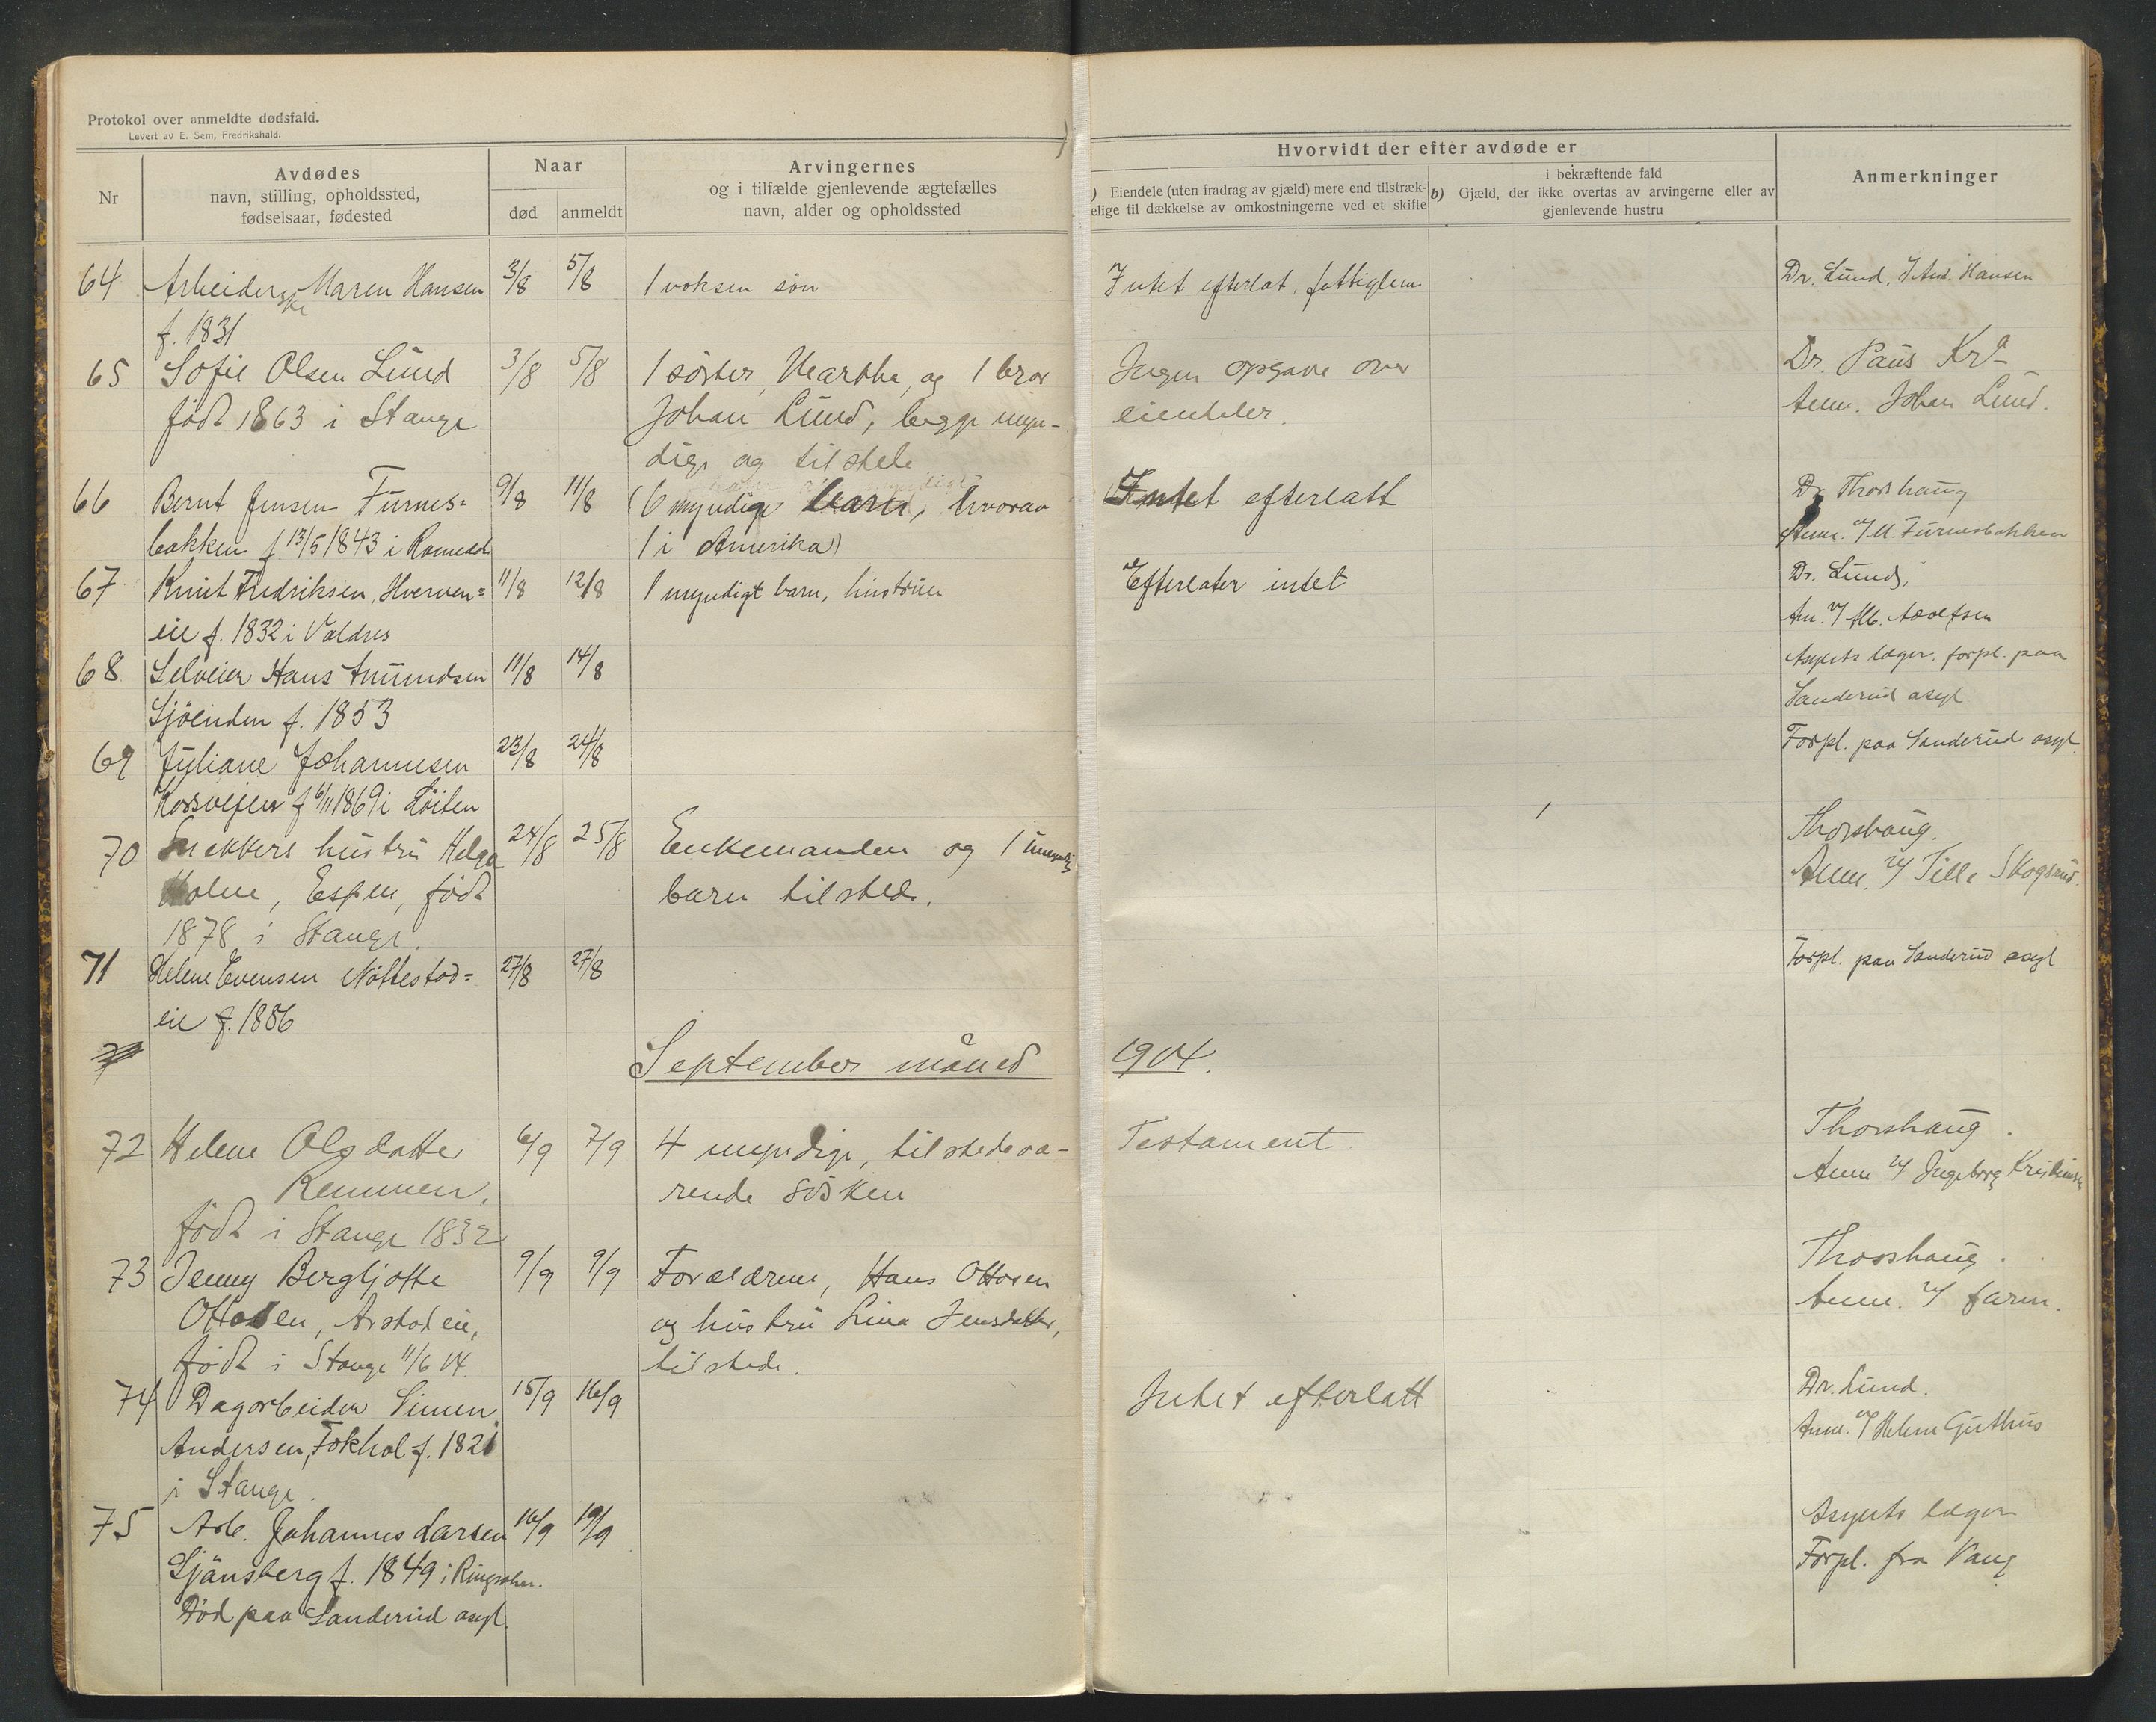 Protokol over anmeldte dødsfald.
Levert av E. Sem, Fredrikshald.
Nr
Avdødes
navn, stilling, opholdssted,
fødselsaar, fødested
Naar
død
anmeldt
Arvingernes
og i tilfælde gjenlevende ægtefælles
navn, alder og opholdssted
Hvorvidt der efter avdøde er
) Eiendele (uten fradrag av gjæld) mere end tilstræk-
elige til dækkelse av omkostningerne ved et skifte
i bekræftende fald
b) Gjæld, der ikke overtas av arvingerne eller av
gjenlevende hustru
Anmerkninger
64 Arbeiderske Maren Hansen 3/8 5/8 1 voksen søn Intet efterlat, fattiglem Dr. Lund, Hansen
f. 1831
65 Sofie Olsen Lund 3/8 5/8 1 søster, Martha, og 1 bror Ingen opgave over Dr. Paus Kra
født 1863 i Stange Johan Lund, begge myn- eiendeler. Anm. Johan Lund.
dige og tilstede
66 Bernt Jensen Furnes= 9/8 11/8 (6 myndige barn, hvorav Intet efterlatt Dr. Thorshaug
bakken f 13/5 1843 i Romedal 1 i Amerika) Anm. v/ M. Furnesbakken
67 Knut Fredriksen, Hverven= 11/8 12/8 1 myndigt barn, hustruen Efterlater intet Dr. Lund,
eie f. 1832 i Valdres An. v/ Alb. Adolfsen
68 Selveier Hans Amundsen 11/8 14/8 Asylets læger. forpl. paa
Sjöenden f. 1853 Sanderud asyl
69 Juliane Johannesen 23/8 24/8 Forpl. paa Sanderud asyl.
Korsvejen f 6/11 1869 i Löiten
70 Snekkers hustru Helga 24/8 25/8 Enkemanden og 1 umyndig Thorshaug.
Holm, Espen, født barn tilstede. Anm. v/ Tille Skogsrud.
1878 i Stange.
71 Helene Evensen Nöttestad= 27/8 27/8 Forpl. paa Sanderud asyl
eie f. 1886
September måned 1904.
72 Helene Olsdatter 6/9 7/9 4 myndige, tilstedevæ- Testament Thorshaug.
Remmen, rende søsken Anm v/ Ingeborg Kristiansen
født i Stange 1832
73 Jenny Bergljotte 9/9 9/9 Forældrene, Hans Ottosen Thorshaug.
Ottosen, Arstad eie, og hustru Lina Jensdatter, Anm. v/ farm.
født i Stange 11/6 04. tilstede.
74 Dagarbeider Simen 15/9 16/9 Intet efterlatt Dr. Lund.
Andersen, Fokhol f. 1821 Anm. v/ Helene Guthus
i Stange.
75 Arb. Johannes Larsen 16/9 19/9 Asylets læger
Sjänsberg f. 1849 i Ringsaker. Forpl. fra Vang
Död paa Sanderud asyl.